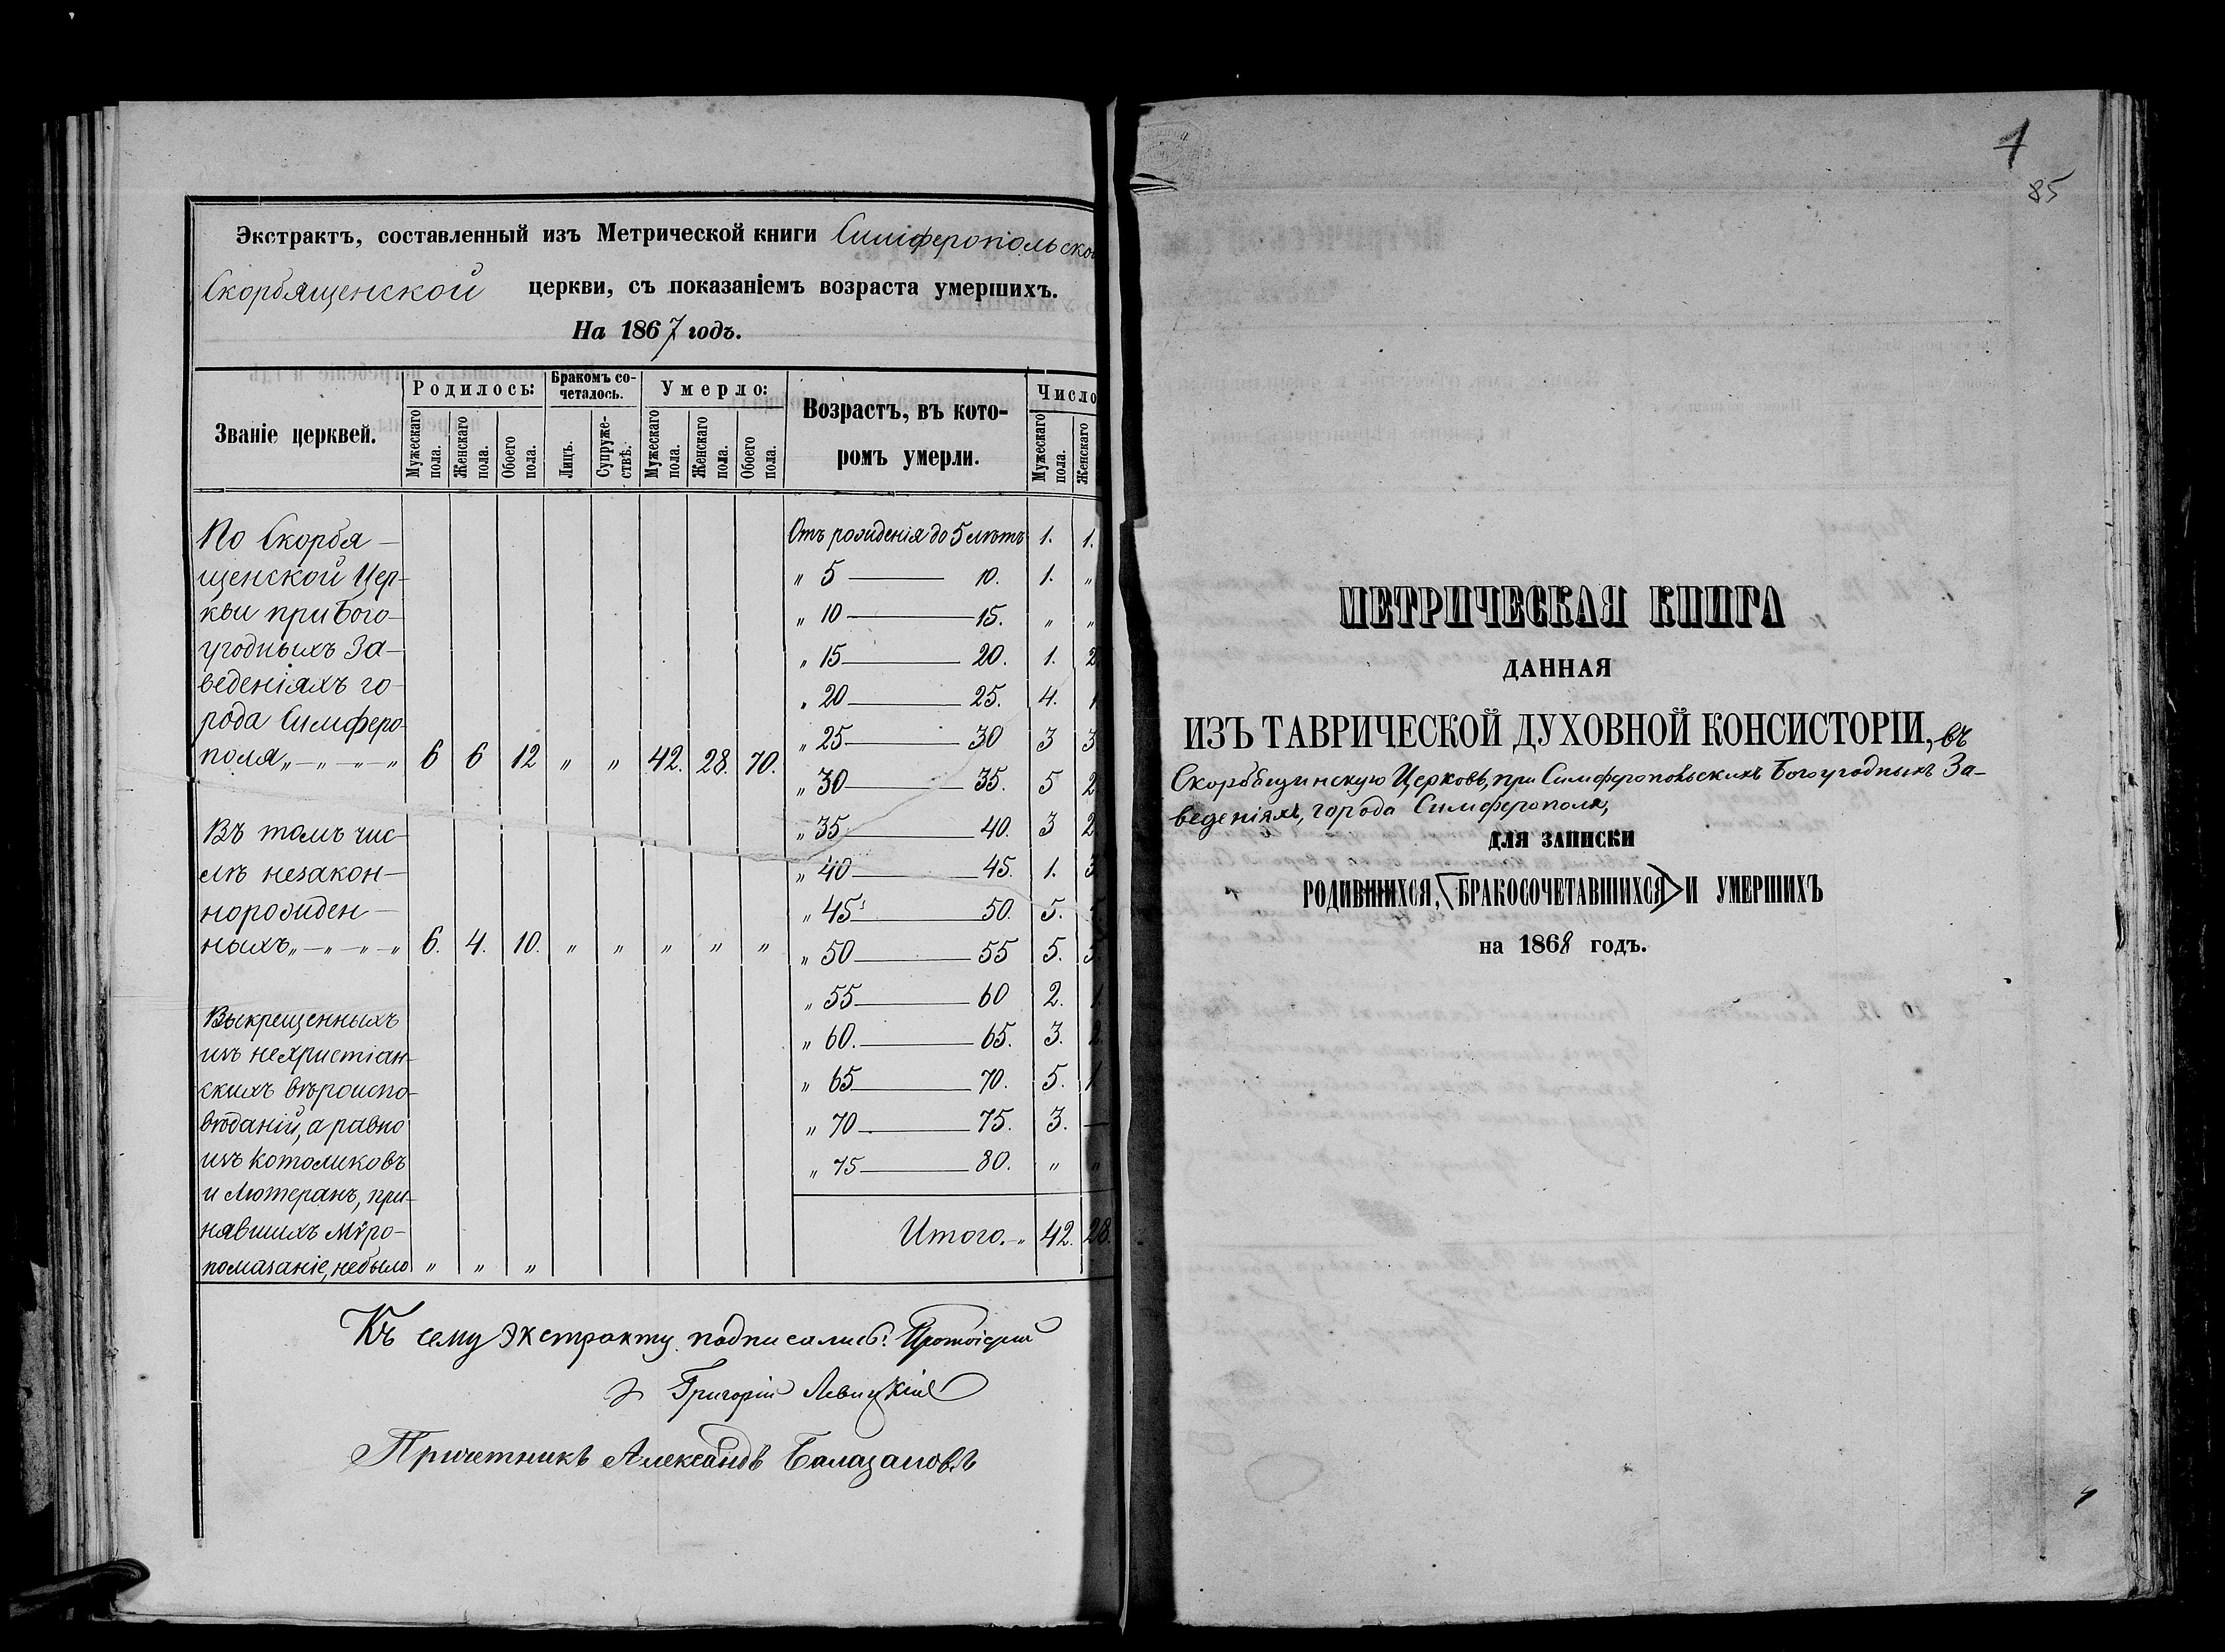 Экстрактъ, составленный изъ Метрической книги Симферопольской
Скорбященской церкви, съ показаніемъ возраста умершихъ.
На 1867 годъ.
Званіе церквей.
Родилось:
Мужескаго пола.
Женскаго пола.
Обоего пола.
Бракомъ со-
четалось.
Лицъ.
Супруже-
ствъ.
Умерло:
Мужескаго пола.
Женскаго пола.
Обоего пола.
Возрастъ, въ кото-
ромъ умерли.
Число
Мужескаго пола.
Женскаго
По Скорбя-
щенской Цер-
кви при Бого-
угодныхъ За-
веденіяхъ го-
рода Симферо-
поля „ - „ - „ - „ 6 6 12 „ „ 42. 28. 70.
Въ томъ чис-
лѣ незакон-
норожден-
ныхъ „ - „ - „ - „ 6. 4. 10. „ „ „ „ „
Выкрещенныхъ
изъ нехристіан-
скихъ вѣроиспо-
вѣданій, а равно
изъ католиковъ
и Лютеранъ, при-
нявшихъ Мѵро-
помазаніе, не было „ „ „
Отъ рожденія до 5 лѣтъ 1. 1.
„ 5 — 10. 1. „
„ 10 — 15. „ „
„ 15 — 20. 1. 2
„ 20 — 25. 4. 1
„ 25 — 30 3 3
„ 30 — 35. 5 2
„ 35 — 40. 3 2
„ 40 — 45. 1. 3
„ 45 — 50. 5.
„ 50 — 55 5. 5.
„ 55 — 60 2. 1.
„ 60. — 65. 3. 2.
„ 65 — 70. 5. 1
„ 70 — 75. 3. —
„ 75 — 80. „ „
Итого. - „ 42. 28.
Къ сему экстракту подписались: Протоіерей
Григорій Левицкій
Причетникъ Александъ
1
85
МЕТРИЧЕСКАЯ КНИГА
ДАННАЯ
ИЗЪ ТАВРИЧЕСКОЙ ДУХОВНОЙ КОНСИСТОРІИ, въ
Скорбященскую Церковь, при Симферопольскихъ Богоугодныхъ За-
веденіяхъ, города Симферополя,
ДЛЯ ЗАПИСКИ
РОДИВШИХСЯ, БРАКОСОЧЕТАВШИХСЯ И УМЕРШИХЪ
на 1868 годъ.